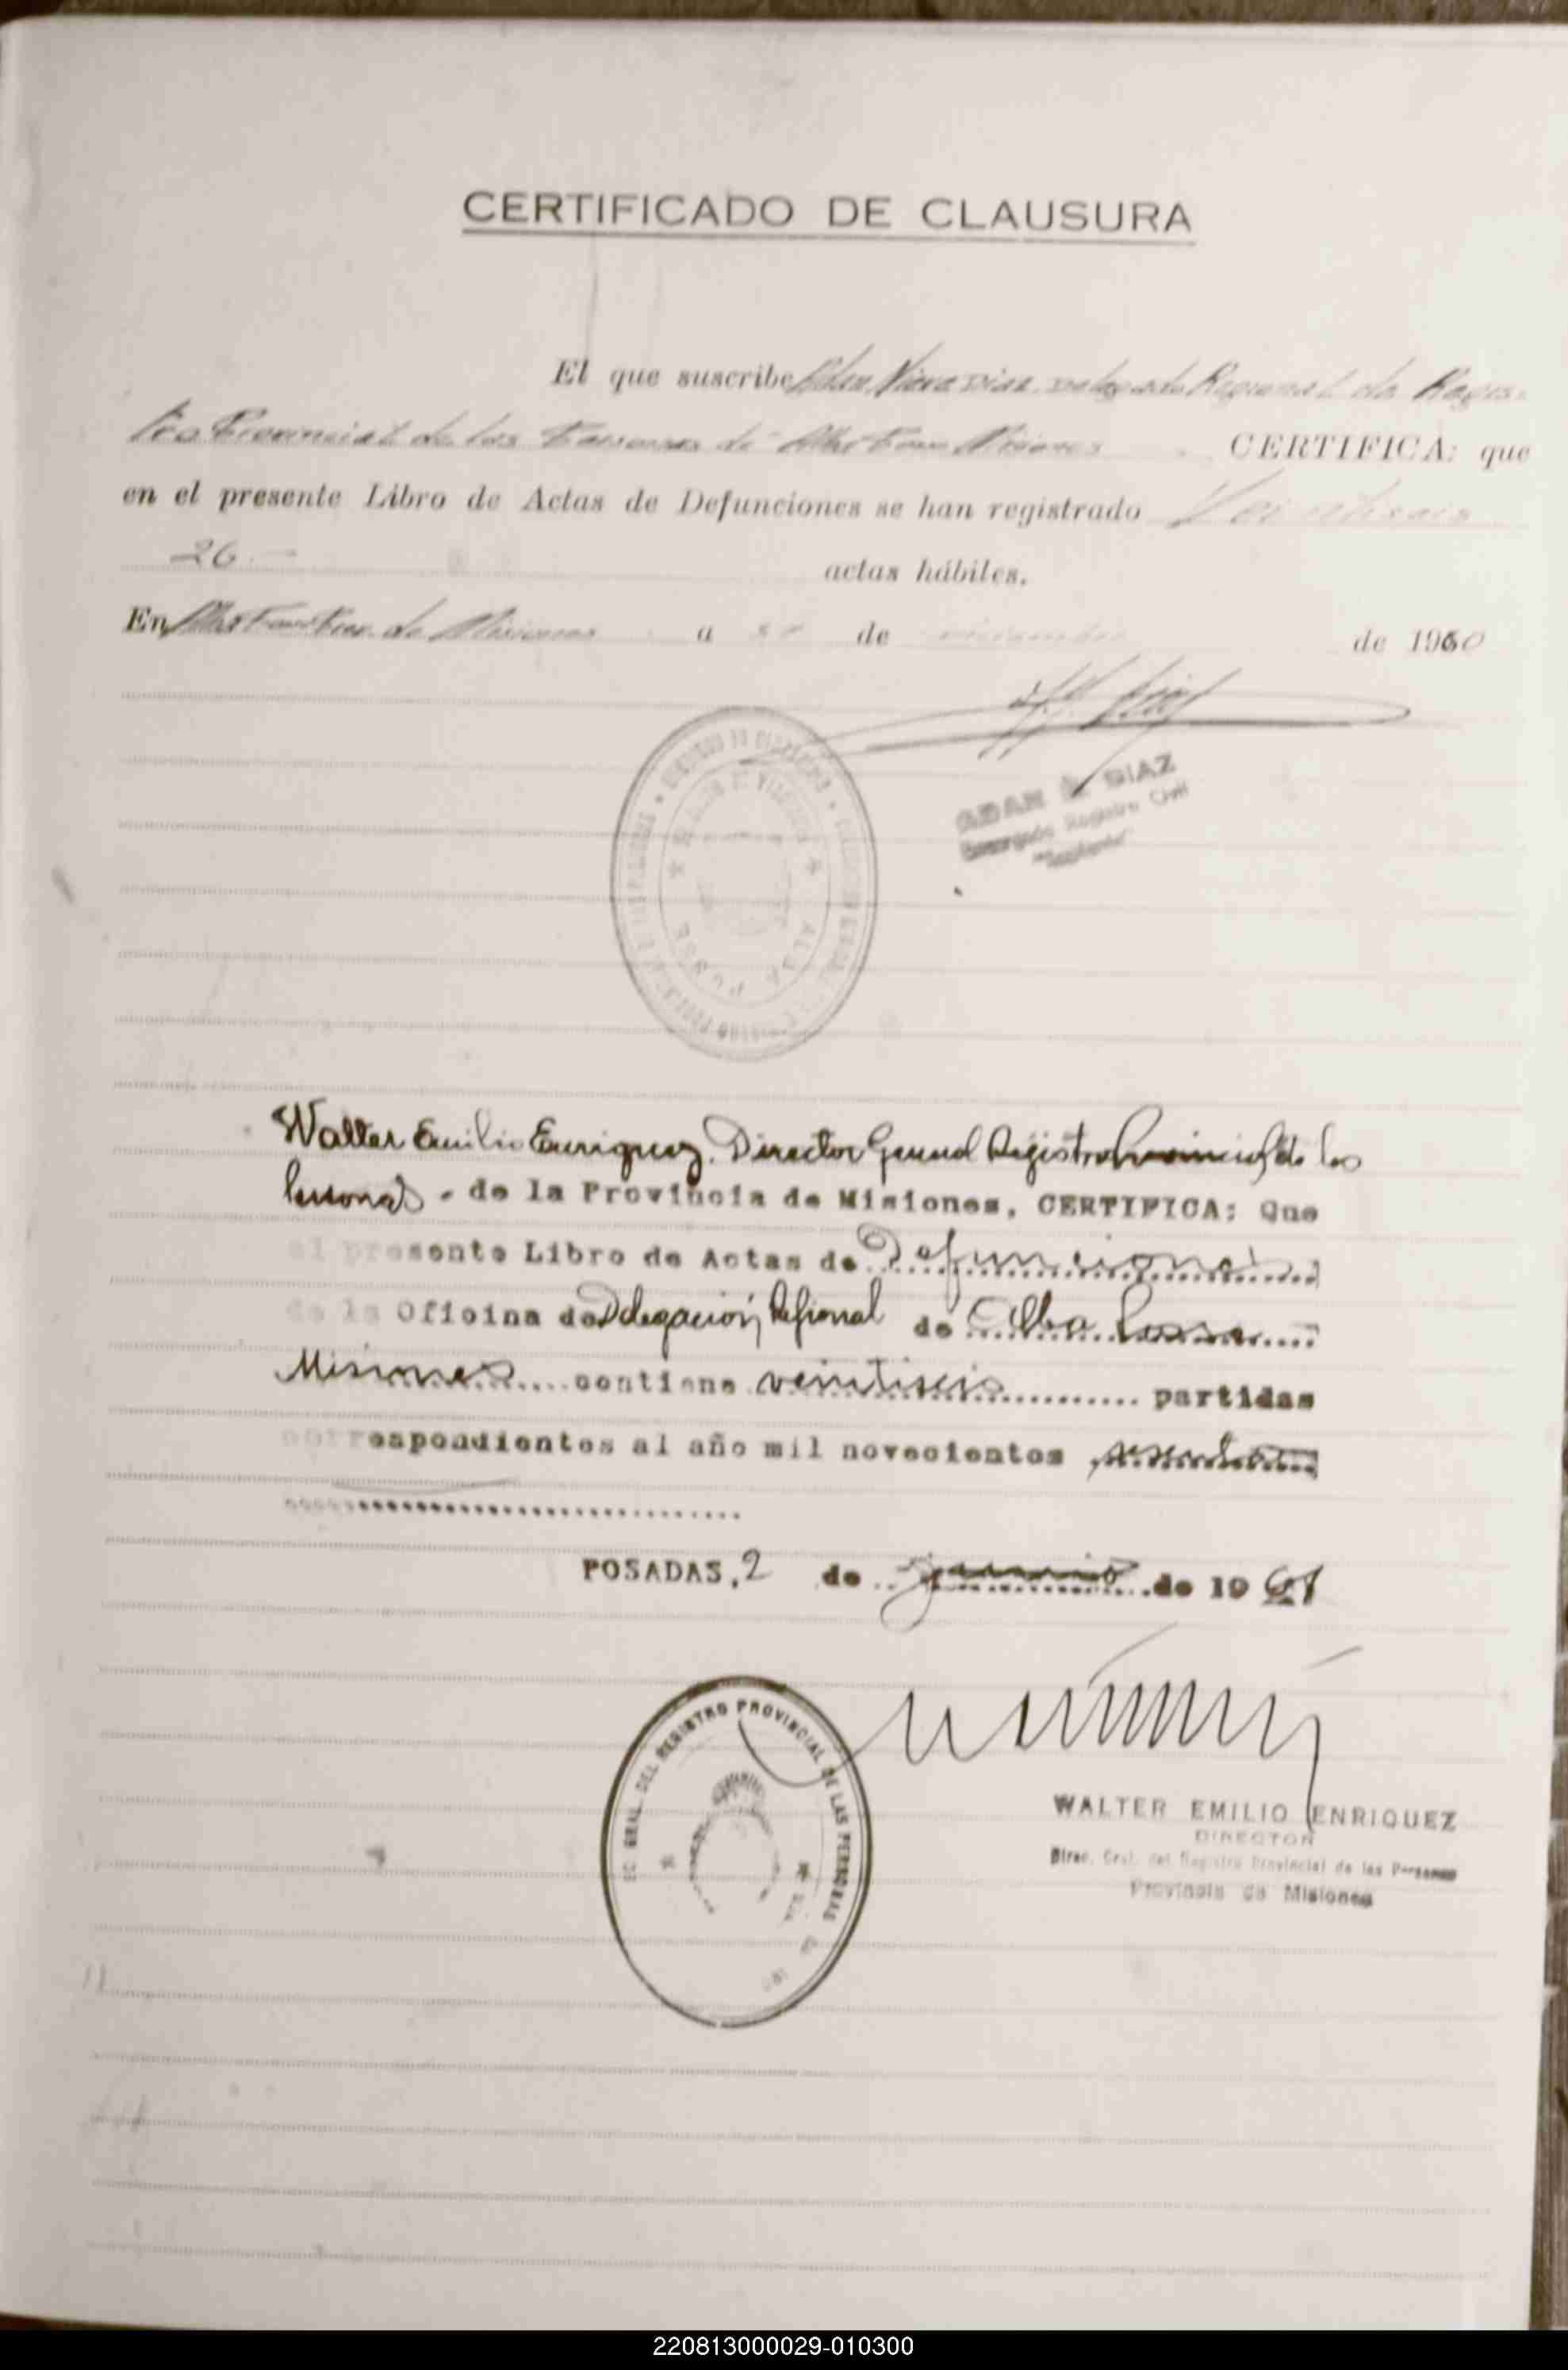 CERTIFICADO DE CLAUSURA
El que suscribe Delegado Regional de Regis-
tro Provincial de las Personas de Misiones CERTIFICA: que
en el presente Libro de Actas de Defunciones se han registrado Veintiseis
26.- actas hábiles.
En de Misiones a de diciembre de 1960
DIAZ
Encargado Registro Civil
"Suplente"
ALBA POSSE
Walter Emilio Enriquez, Director General Registro Provincial de las
Personas - de la Provincia de Misiones, CERTIFICA: Que
el presente Libro de Actas de Defunciones
de la Oficina de Delegación Regional de Alba Posse
Misiones contiene veintiseis partidas
correspondientes al año mil novecientos sesenta
POSADAS, 2 de de 1961
GRAL. DEL REGISTRO PROVINCIAL DE LAS PERSONAS
WALTER EMILIO ENRIQUEZ
DIRECTOR
Direc. Gral. del Registro Provincial de las Personas
Provincia de Misiones
220813000029-010300